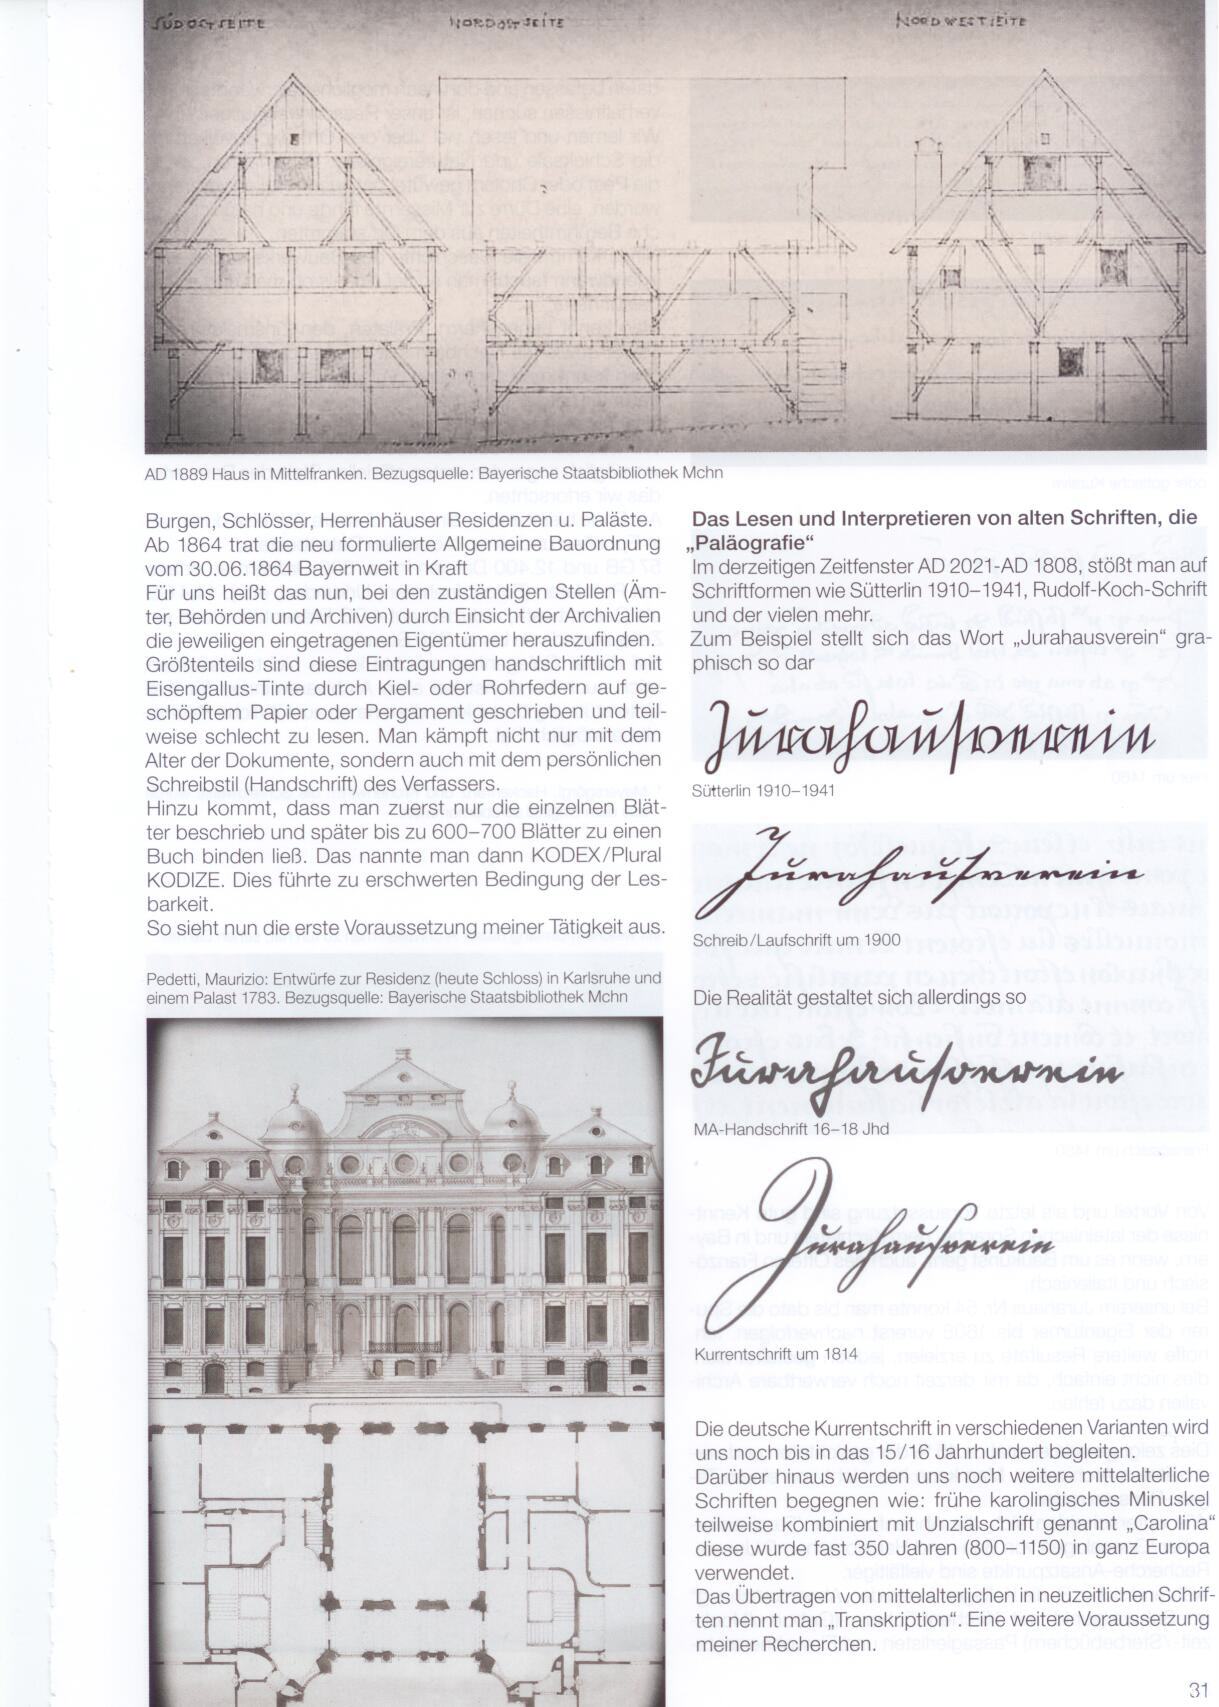 SÜDOSTSEITE
NORDOSTSEITE
NORDWESTSEITE
AD 1889 Haus in Mittelfranken. Bezugsquelle: Bayerische Staatsbibliothek Mchn
Burgen, Schlösser, Herrenhäuser Residenzen u. Paläste.
Ab 1864 trat die neu formulierte Allgemeine Bauordnung
vom 30.06.1864 Bayernweit in Kraft
Für uns heißt das nun, bei den zuständigen Stellen (Äm-
ter, Behörden und Archiven) durch Einsicht der Archivalien
die jeweiligen eingetragenen Eigentümer herauszufinden.
Größtenteils sind diese Eintragungen handschriftlich mit
Eisengallus-Tinte durch Kiel- oder Rohrfedern auf ge-
schöpftem Papier oder Pergament geschrieben und teil-
weise schlecht zu lesen. Man kämpft nicht nur mit dem
Alter der Dokumente, sondern auch mit dem persönlichen
Schreibstil (Handschrift) des Verfassers.
Hinzu kommt, dass man zuerst nur die einzelnen Blät-
ter beschrieb und später bis zu 600–700 Blätter zu einen
Buch binden ließ. Das nannte man dann KODEX/Plural
KODIZE. Dies führte zu erschwerten Bedingung der Les-
barkeit.
So sieht nun die erste Voraussetzung meiner Tätigkeit aus.
Pedetti, Maurizio: Entwürfe zur Residenz (heute Schloss) in Karlsruhe und
einem Palast 1783. Bezugsquelle: Bayerische Staatsbibliothek Mchn
Das Lesen und Interpretieren von alten Schriften, die
„Paläografie“
Im derzeitigen Zeitfenster AD 2021-AD 1808, stößt man auf
Schriftformen wie Sütterlin 1910–1941, Rudolf-Koch-Schrift
und der vielen mehr.
Zum Beispiel stellt sich das Wort „Jurahausverein“ gra-
phisch so dar
Jurahausverein
Sütterlin 1910–1941
Jurahausverein
Schreib/Laufschrift um 1900
Die Realität gestaltet sich allerdings so
Jurahausverein
MA-Handschrift 16–18 Jhd
Jurahausverein
Kurrentschrift um 1814
Die deutsche Kurrentschrift in verschiedenen Varianten wird
uns noch bis in das 15/16 Jahrhundert begleiten.
Darüber hinaus werden uns noch weitere mittelalterliche
Schriften begegnen wie: frühe karolingisches Minuskel
teilweise kombiniert mit Unzialschrift genannt „Carolina“
diese wurde fast 350 Jahren (800–1150) in ganz Europa
verwendet.
Das Übertragen von mittelalterlichen in neuzeitlichen Schrif-
ten nennt man „Transkription“. Eine weitere Voraussetzung
meiner Recherchen.
31